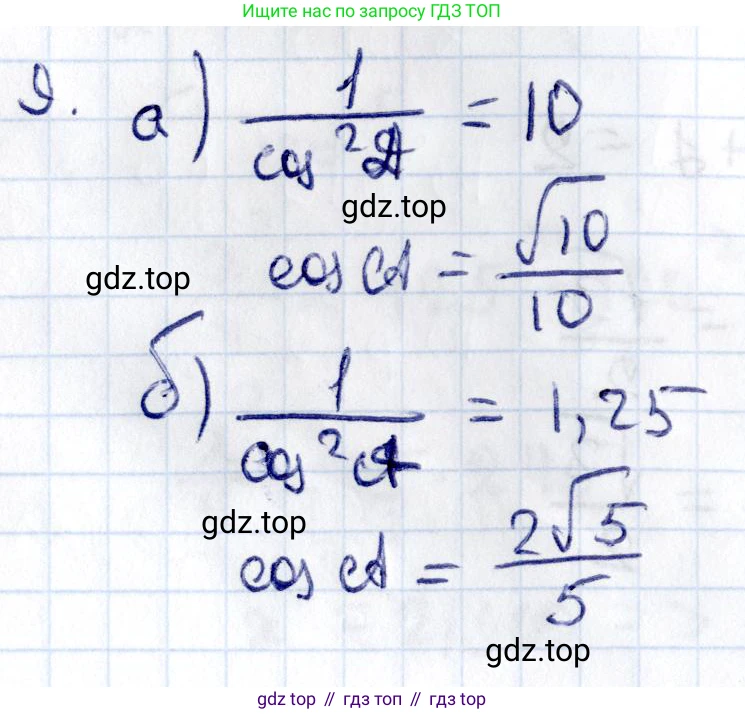 Ищите нас по запросу ГДЗ ТОП
9. а) 1/cos²A = 10
gdz.top
cos A = √10/10
gdz.top
б) 1/cos²A = 1,25
gdz.top
cos A = 2√5/5
gdz.top
gdz top // гдз топ // gdz top